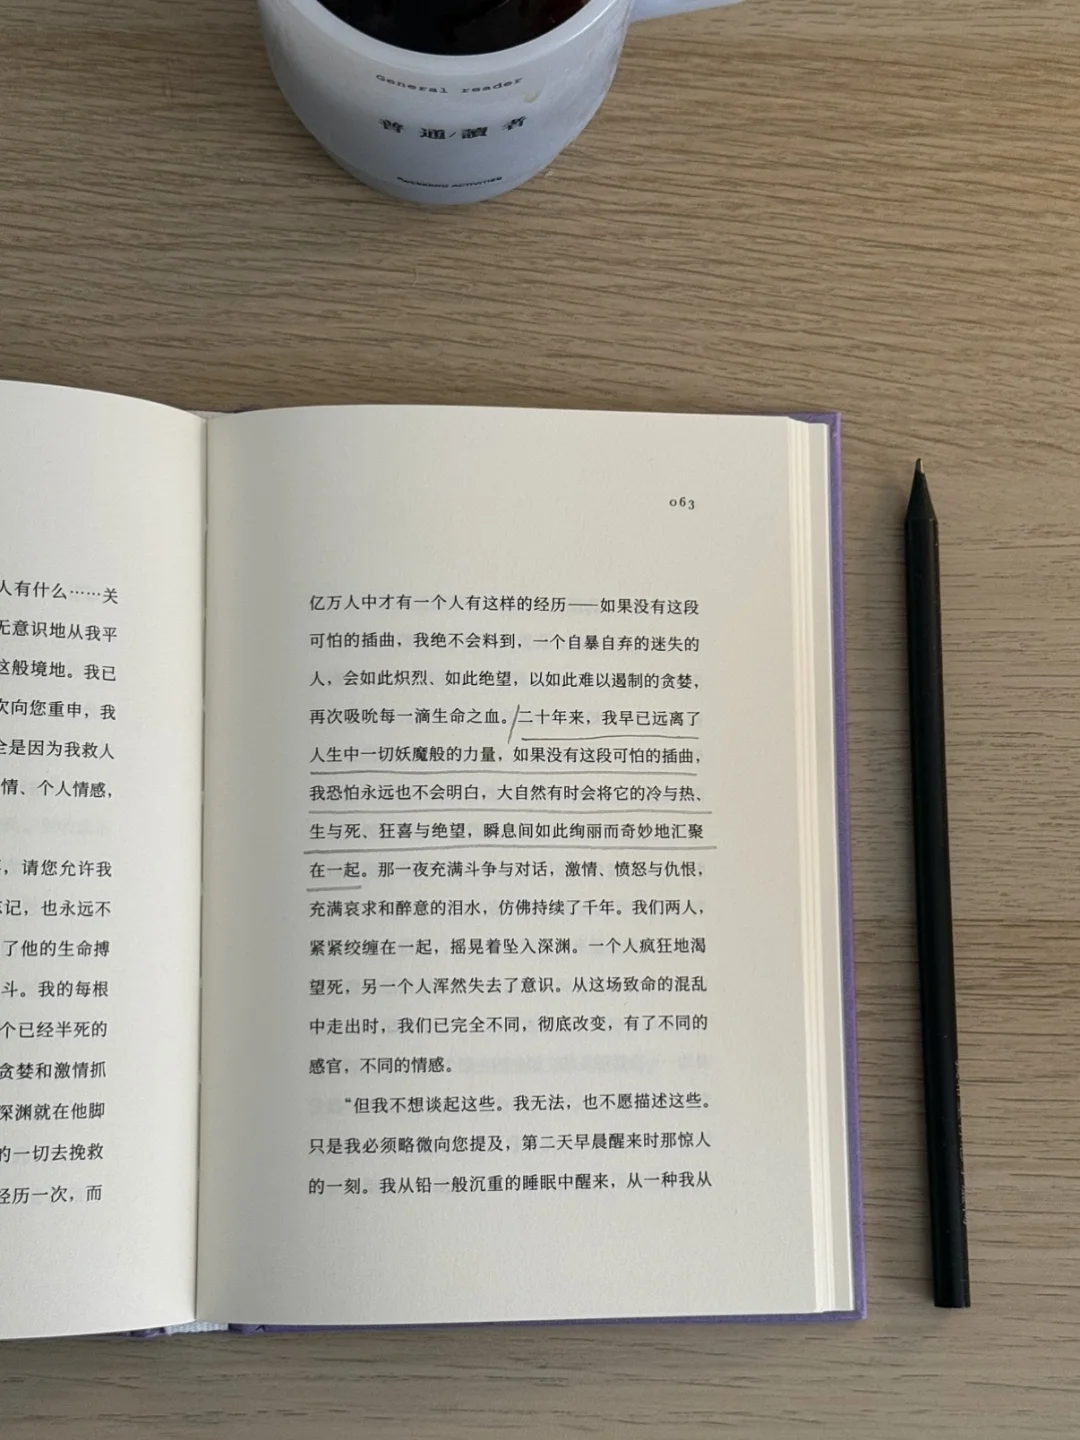 General reader
普通/讀者
人有什么……关
无意识地从我平
这般境地。我已
次向您重申，我
全是因为我救人
情、个人情感，
，请您允许我
忘记，也永远不
了他的生命搏
斗。我的每根
个已经半死的
贪婪和激情抓
深渊就在他脚
的一切去挽救
经历一次，而
063
亿万人中才有一个人有这样的经历——如果没有这段
可怕的插曲，我绝不会料到，一个自暴自弃的迷失的
人，会如此炽烈、如此绝望，以如此难以遏制的贪婪，
再次吸吮每一滴生命之血。/二十年来，我早已远离了
人生中一切妖魔般的力量，如果没有这段可怕的插曲，
我恐怕永远也不会明白，大自然有时会将它的冷与热、
生与死、狂喜与绝望，瞬息间如此绚丽而奇妙地汇聚
在一起。那一夜充满斗争与对话，激情、愤怒与仇恨，
充满哀求和醉意的泪水，仿佛持续了千年。我们两人，
紧紧绞缠在一起，摇晃着坠入深渊。一个人疯狂地渴
望死，另一个人浑然失去了意识。从这场致命的混乱
中走出时，我们已完全不同，彻底改变，有了不同的
感官，不同的情感。
“但我不想谈起这些。我无法，也不愿描述这些。
只是我必须略微向您提及，第二天早晨醒来时那惊人
的一刻。我从铅一般沉重的睡眠中醒来，从一种我从